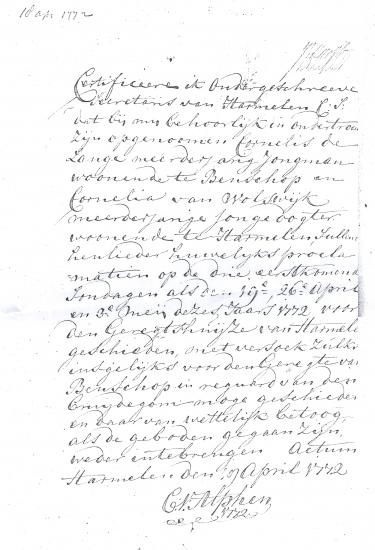 18 apr 1772
Certificeere ik Ondergeschreeve
Secretaris van Harmelen
dat bij mij behoorlijk in ondertrou
zijn opgenoomen Cornelis de
Lange meerderjarig Jongman
woonende te Benschop en
Cornelia van Wolswijk
meerderjarige jongedogter
woonende te Harmelen, Sullen
henlieder huwelijks procla
matien op de drie eerstkomend
Sondagen als den 19e, 26e April
en 3e Meij dezes Jaars 1772 voor
den Geregtshuijze van Harmele
geschieden, met versoek zulks
insgelijks voor den Geregte van
Benschop in reguard van den
Bruijdegom moge geschieden
en daar van wettelijk betoog
als de geboden gegaan zijn
weder intebrengen Actum
Harmelen den April 1772
C V Alphen
1772